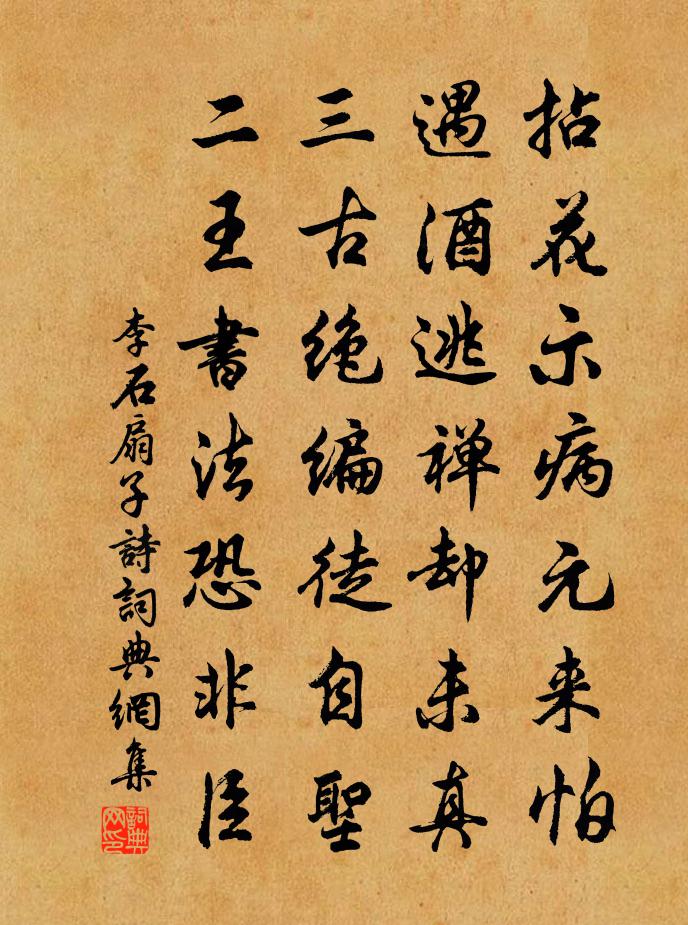 拈花示病元来怕
遇酒逃禅却未真
三古绝编徒自聖
二王書法恐非臣
李石扇子詩詞典網集
詞典网印